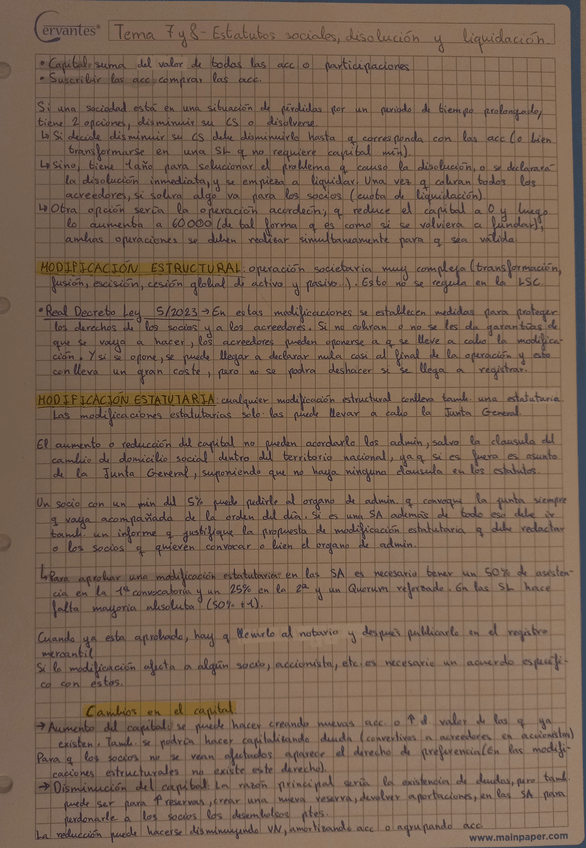 Cervantes®
Tema 7 y 8 - Estatutos sociales, disolución y liquidación.
• Capital: suma del valor de todas las acc o participaciones
• Suscribir las acc: comprar las acc.
Si una sociedad está en una situación de pérdidas por un periodo de tiempo prolongado,
tiene 2 opciones, disminuir su CS o disolverse.
↳ Si decide disminuir su CS debe disminuirlo hasta q corresponda con las acc (o bien
transformarse en una SL q no requiere capital mín).
↳ Sino, tiene 1 año para solucionar el problema q causó la disolución, o se declarará
la disolución inmediata, y se empieza a liquidar. Una vez q cobran todos los
acreedores, si sobra algo va para los socios (cuota de liquidación)
↳ Otra opción sería la operación acordeón, q reduce el capital a 0 y luego
lo aumenta a 60000 (de tal forma q es como si se volviera a fundar),
ambas operaciones se deben realizar simultaneamente para q sea válida
MODIFICACIÓN ESTRUCTURAL: operación societaria muy compleja (transformación,
fusión, escisión, cesión global de activo y pasivo). Esto no se regula en la LSC
• Real Decreto Ley 5/2023 → En estas modificaciones se establecen medidas para proteger
los derechos de los socios y a los acreedores. Si no cobran o no se les da garantías de
que se vaya a hacer, los acreedores pueden oponerse a q se lleve a cabo la modifica-
ción. Y si se opone, se puede llegar a declarar nula casi al final de la operación y esto
conlleva un gran coste, pero no se podrá deshacer si se llega a registrar.
MODIFICACIÓN ESTATUTARIA: cualquier modificación estructural conlleva tamb. una estatutaria
Las modificaciones estatutarias solo las puede llevar a cabo la Junta General.
El aumento o reducción del capital no pueden acordarlo los admin, salvo la clausula del
cambio de domicilio social dentro del territorio nacional, ya q si es fuera es asunto
de la Junta General, suponiendo que no haya ninguna clausula en los estatutos.
Un socio con un min del 5% puede pedirle al organo de admin. q convoque la junta siempre
q vaya acompañada de la orden del día. Si es una SA además de todo eso debe ir
tamb. un informe q justifique la propuesta de modificación estatutaria q debe redactar
o los socios q quieren convocar o bien el organo de admin.
↳ Para aprobar una modificación estatutaria: en las SA es necesario tener un 50% de asisten-
cia en la 1ª convocatoria y un 25% en la 2ª y un Quorum reforzado. En las SL hace
falta mayoría absoluta (50% +1).
Cuando ya está aprobado, hay q llevarlo al notario y después publicarlo en el registro
mercantil
Si la modificación afecta a algún socio, accionista, etc es necesario un acuerdo específi-
co con éstos.
Cambios en el capital
→ Aumento del capital: se puede hacer creando nuevas acc. o ↑ el valor de las q ya
existen. Tamb. se podría hacer capitalizando deuda (convertimos a acreedores en accionistas)
Para q los socios no se vean afectados aparece el derecho de preferencia (En las modifi-
caciones estructurales no existe este derecho).
→ Disminución del capital: La razón principal sería la existencia de deudas, pero tamb
puede ser para ↑ reservas, crear una nueva reserva, devolver aportaciones, en las SA para
perdonarle a los socios los desembolsos ptes.
La reducción puede hacerse disminuyendo VN, amortizando acc o agrupando acc
www.mainpaper.com